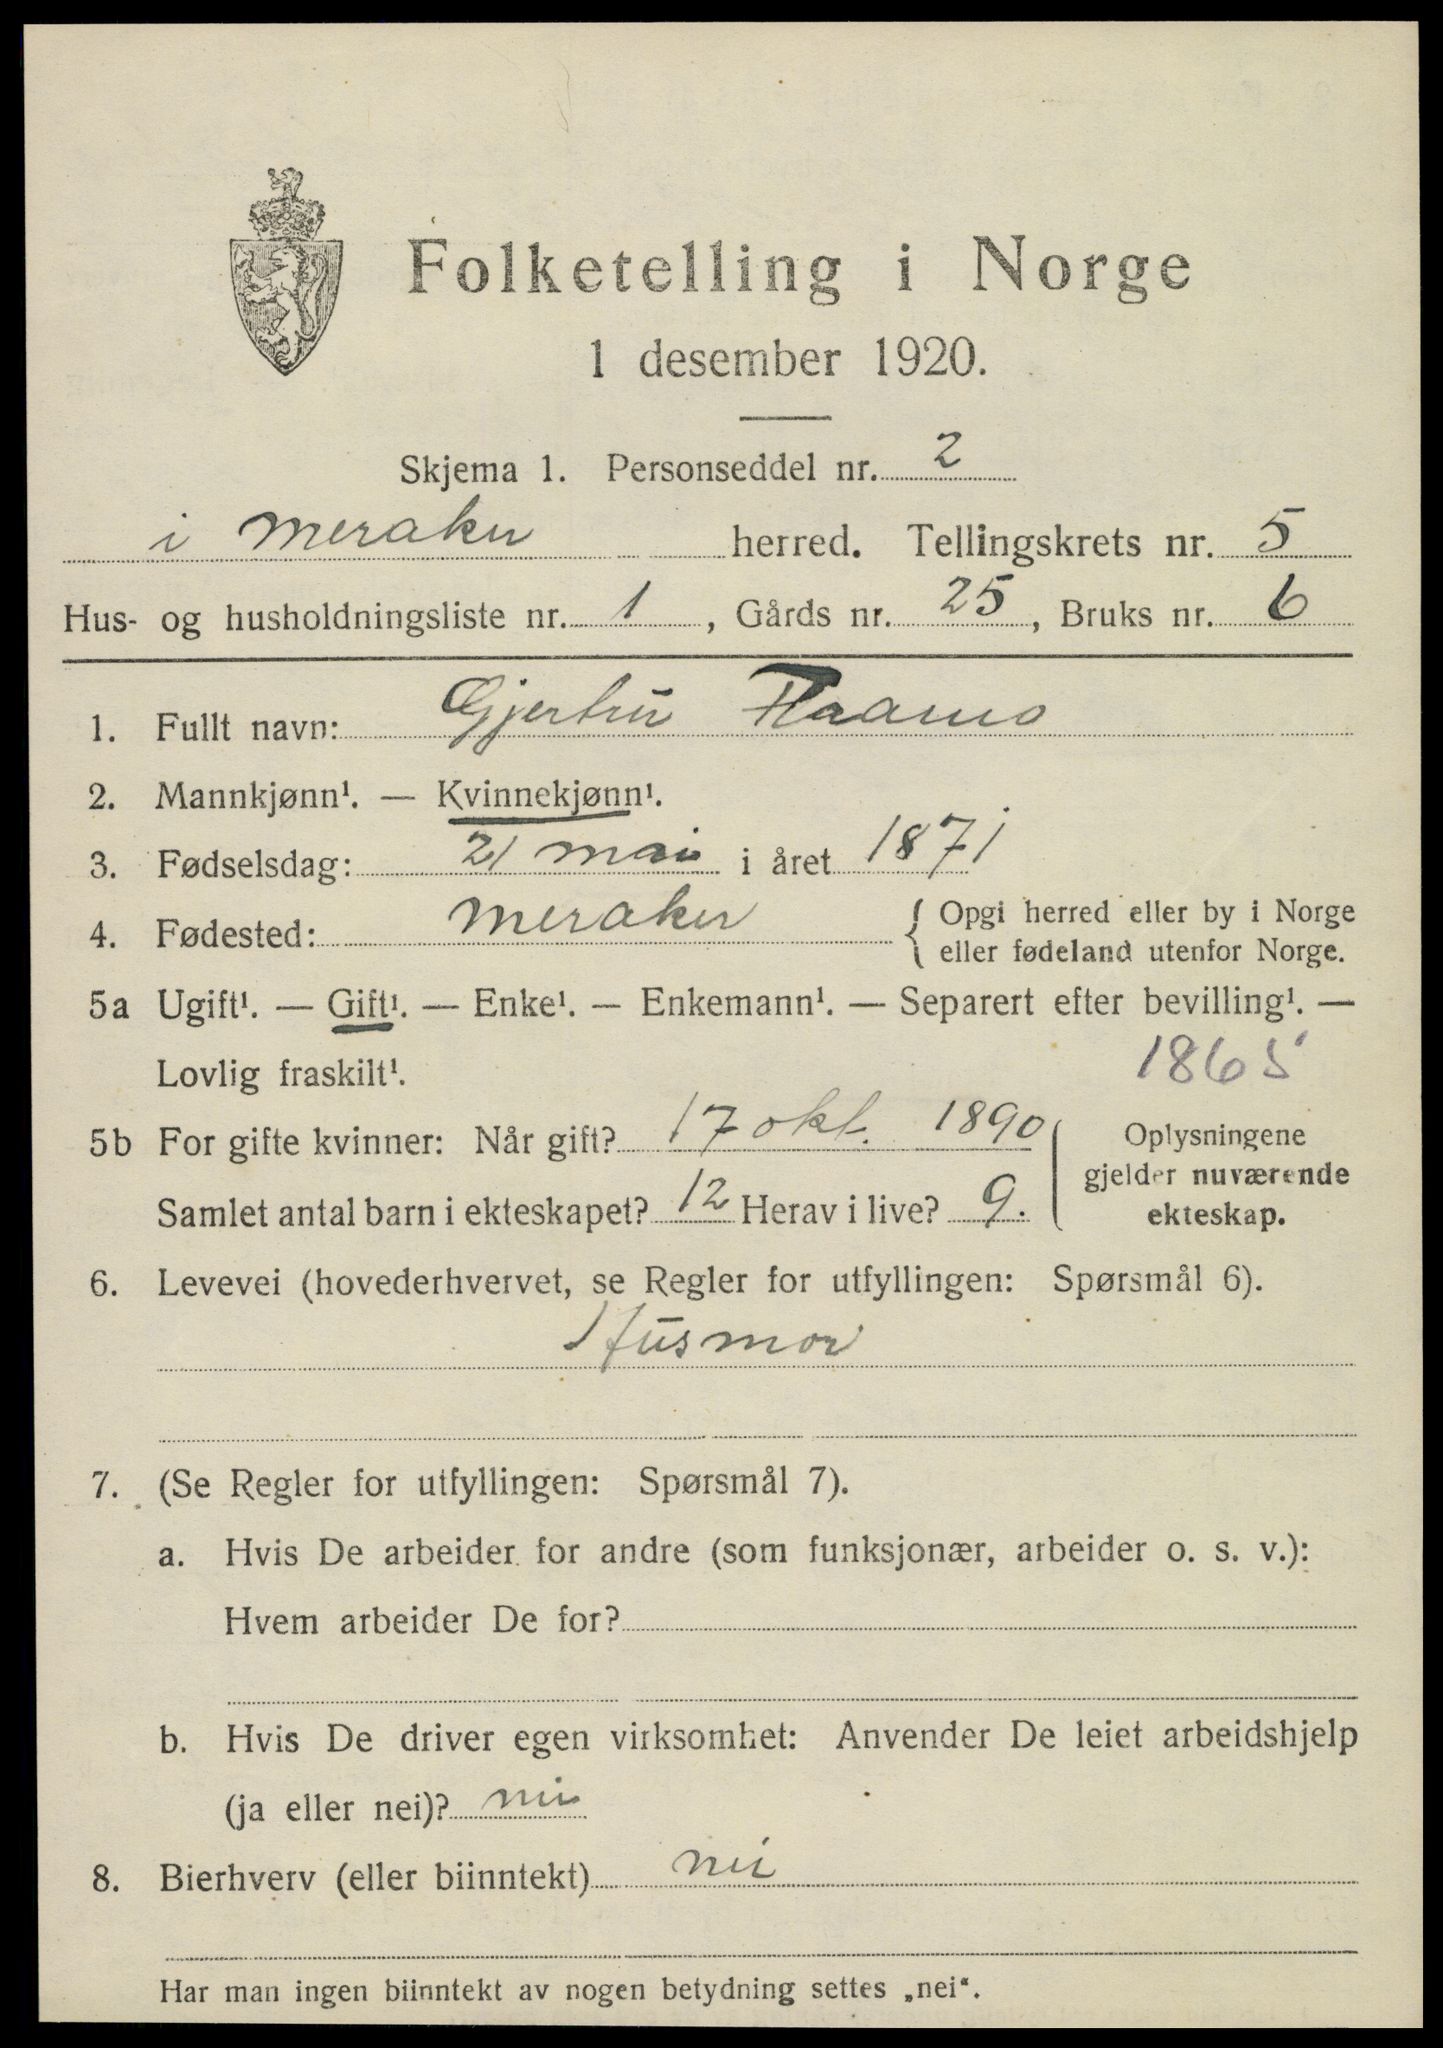 Folketelling i Norge
1 desember 1920.
Skjema 1. Personseddel nr. 2
i Meraker herred. Tellingskrets nr. 5
Hus- og husholdningsliste nr. 1, Gårds nr. 25, Bruks nr. 6
1. Fullt navn: Gjertru
2. Mannkjønn¹. — Kvinnekjønn¹.
3. Fødselsdag: 21 mai i året 1871
4. Fødested: Meraker { Opgi herred eller by i Norge
eller fødeland utenfor Norge.
5a Ugift¹. — Gift¹. — Enke¹. — Enkemann¹. — Separert efter bevilling¹. —
Lovlig fraskilt¹. 1865
5b For gifte kvinner: Når gift? 17 okt. 1890
Samlet antal barn i ekteskapet? 12 Herav i live? 9.
Oplysningene
gjelder nuværende
ekteskap.
6. Levevei (hovederhvervet, se Regler for utfyllingen: Spørsmål 6).
Husmor
7. (Se Regler for utfyllingen: Spørsmål 7).
a. Hvis De arbeider for andre (som funksjonær, arbeider o. s. v.):
Hvem arbeider De for?
b. Hvis De driver egen virksomhet: Anvender De leiet arbeidshjelp
(ja eller nei)? nei
8. Bierhverv (eller biinntekt) nei
Har man ingen biinntekt av nogen betydning settes „nei“.